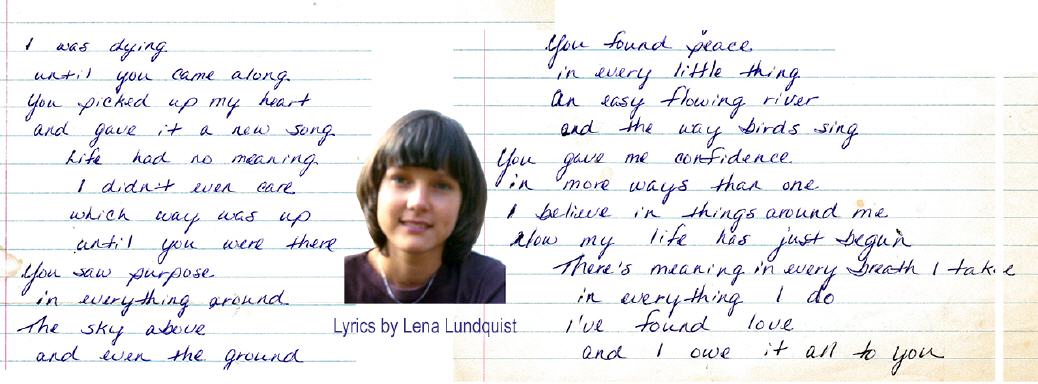 I was dying
until you came along.
You picked up my heart
and gave it a new song.
Life had no meaning.
I didn't even care
which way was up
until you were there
You saw purpose
in everything around
The sky above
and even the ground
Lyrics by Lena Lundquist
You found peace
in every little thing
An easy flowing river
and the way birds sing
You gave me confidence.
in more ways than one
I believe in things around me
Now my life has just begun
There's meaning in every breath I take
in everything I do
I've found love
and I owe it all to you